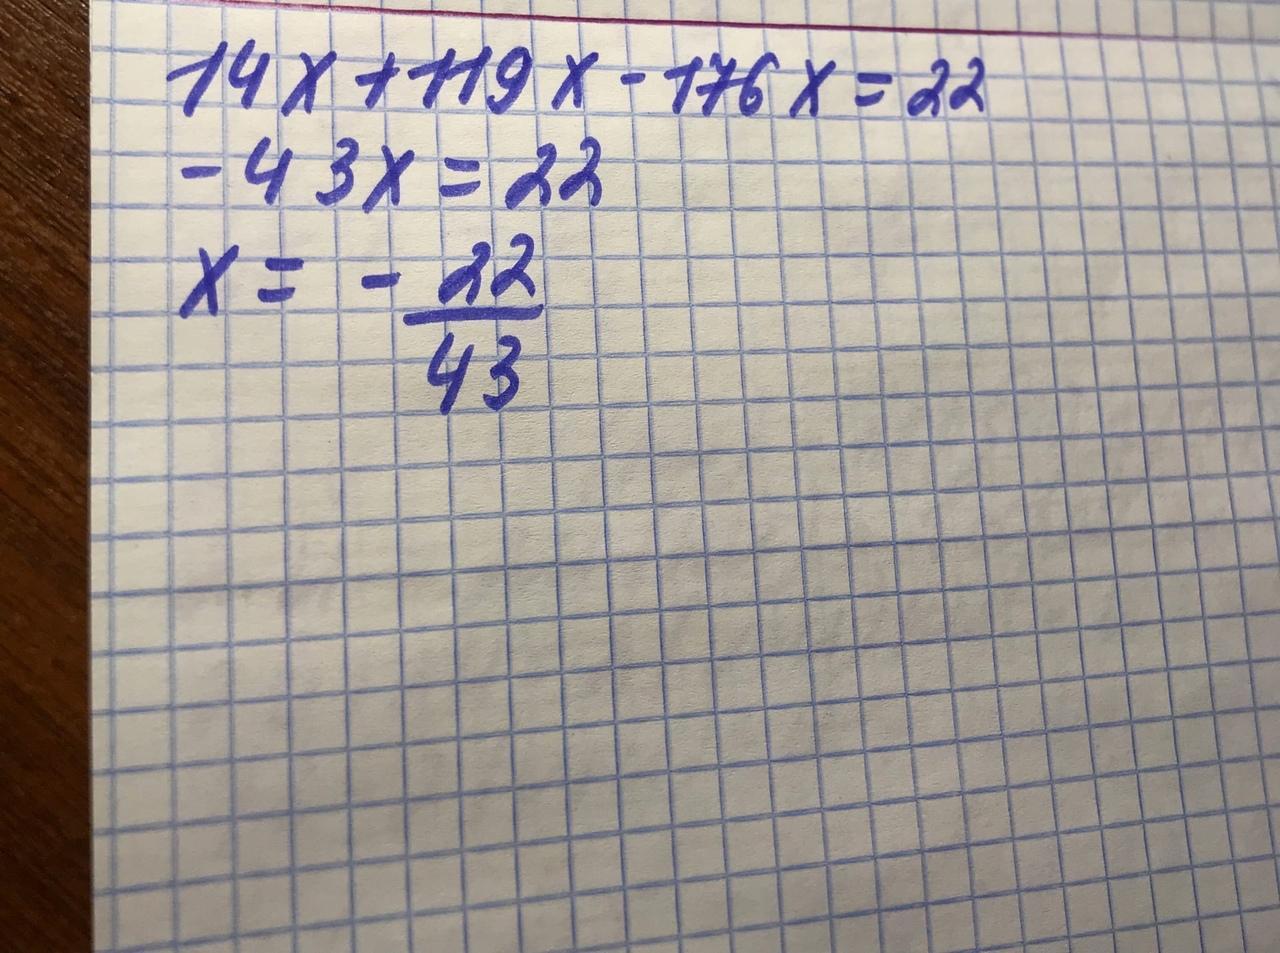 14x+119x-176x=22
-43x=22
x= - 22/43